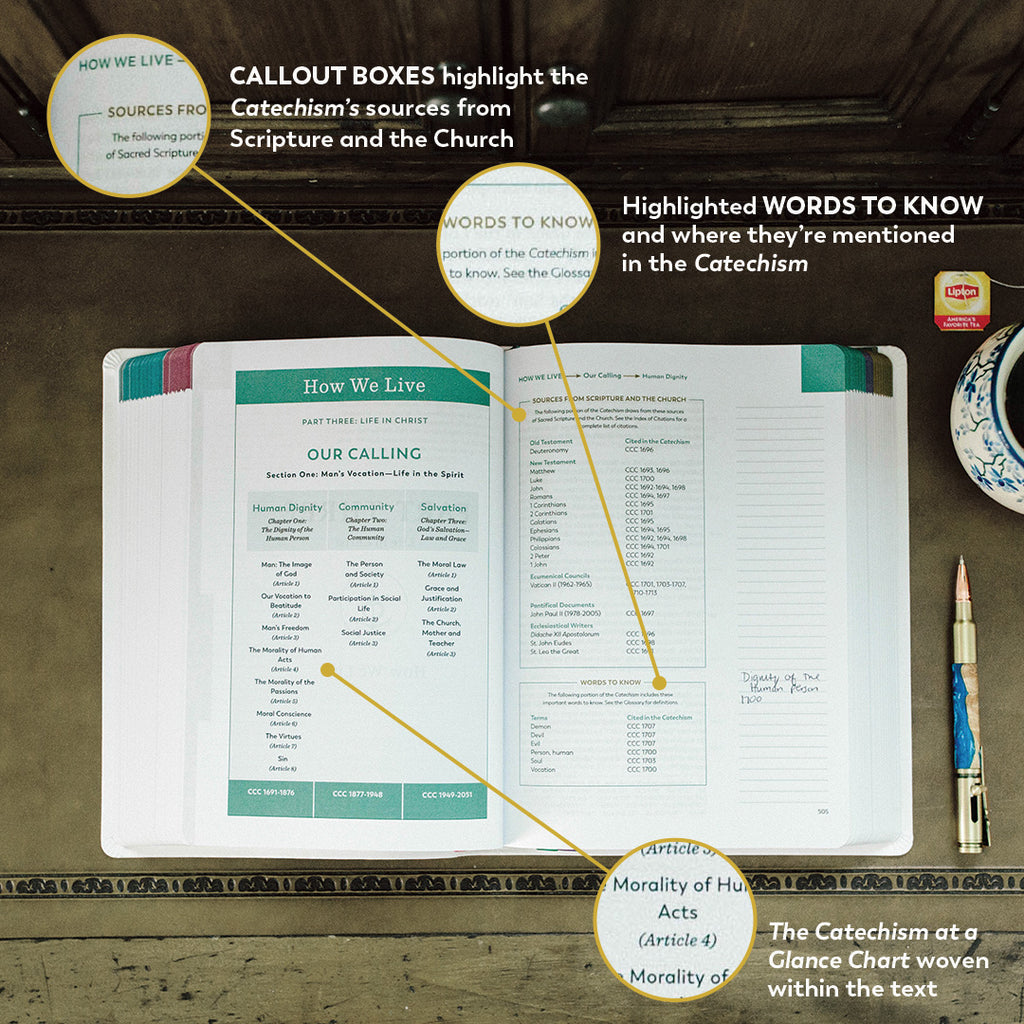 HOW WE LIVE
SOURCES FRO
The following porti
of Sacred Scripture
CALLOUT BOXES highlight the
Catechism's sources from
Scripture and the Church
WORDS TO KNOW
portion of the Catechism i
to know. See the Glossa
Highlighted WORDS TO KNOW
and where they're mentioned
in the Catechism
Lipton
AMERICA'S
FAVORITE TEA
How We Live
PART THREE: LIFE IN CHRIST
OUR CALLING
Section One: Man's Vocation—Life in the Spirit
Human Dignity
Chapter One:
The Dignity of the
Human Person
Man: The Image
of God
(Article 1)
Our Vocation to
Beatitude
(Article 2)
Man's Freedom
(Article 3)
The Morality of Human
Acts
(Article 4)
The Morality of the
Passions
(Article 5)
Moral Conscience
(Article 6)
The Virtues
(Article 7)
Sin
(Article 8)
CCC 1691-1876
Community
Chapter Two:
The Human
Community
The Person
and Society
(Article 1)
Participation in Social
Life
(Article 2)
Social Justice
(Article 3)
CCC 1877-1948
Salvation
Chapter Three:
God's Salvation—
Law and Grace
The Moral Law
(Article 1)
Grace and
Justification
(Article 2)
The Church,
Mother and
Teacher
(Article 3)
CCC 1949-2051
HOW WE LIVE → Our Calling → Human Dignity
SOURCES FROM SCRIPTURE AND THE CHURCH
The following portion of the Catechism draws from these sources
of Sacred Scripture and the Church. See the Index of Citations for a
complete list of citations.
Old Testament Cited in the Catechism
Deuteronomy CCC 1696
New Testament
Matthew CCC 1693, 1696
Luke CCC 1700
John CCC 1692-1694, 1698
Romans CCC 1694, 1697
1 Corinthians CCC 1695
2 Corinthians CCC 1701
Galatians CCC 1695
Ephesians CCC 1694, 1695
Philippians CCC 1692, 1694, 1698
Colossians CCC 1694, 1701
2 Peter CCC 1692
1 John CCC 1692
Ecumenical Councils
Vatican II (1962-1965) CCC 1701, 1703-1707,
1710-1713
Pontifical Documents
John Paul II (1978-2005) CCC 1697
Ecclesiastical Writers
Didache XII Apostolorum CCC 1696
St. John Eudes CCC 1698
St. Leo the Great CCC 1691
WORDS TO KNOW
The following portion of the Catechism includes these
important words to know. See the Glossary for definitions.
Terms Cited in the Catechism
Demon CCC 1707
Devil CCC 1707
Evil CCC 1707
Person, human CCC 1700
Soul CCC 1703
Vocation CCC 1700
Dignity of The
Human Person
1700
505
(Article 3)
Morality of Hu
Acts
(Article 4)
Morality of
The Catechism at a
Glance Chart woven
within the text